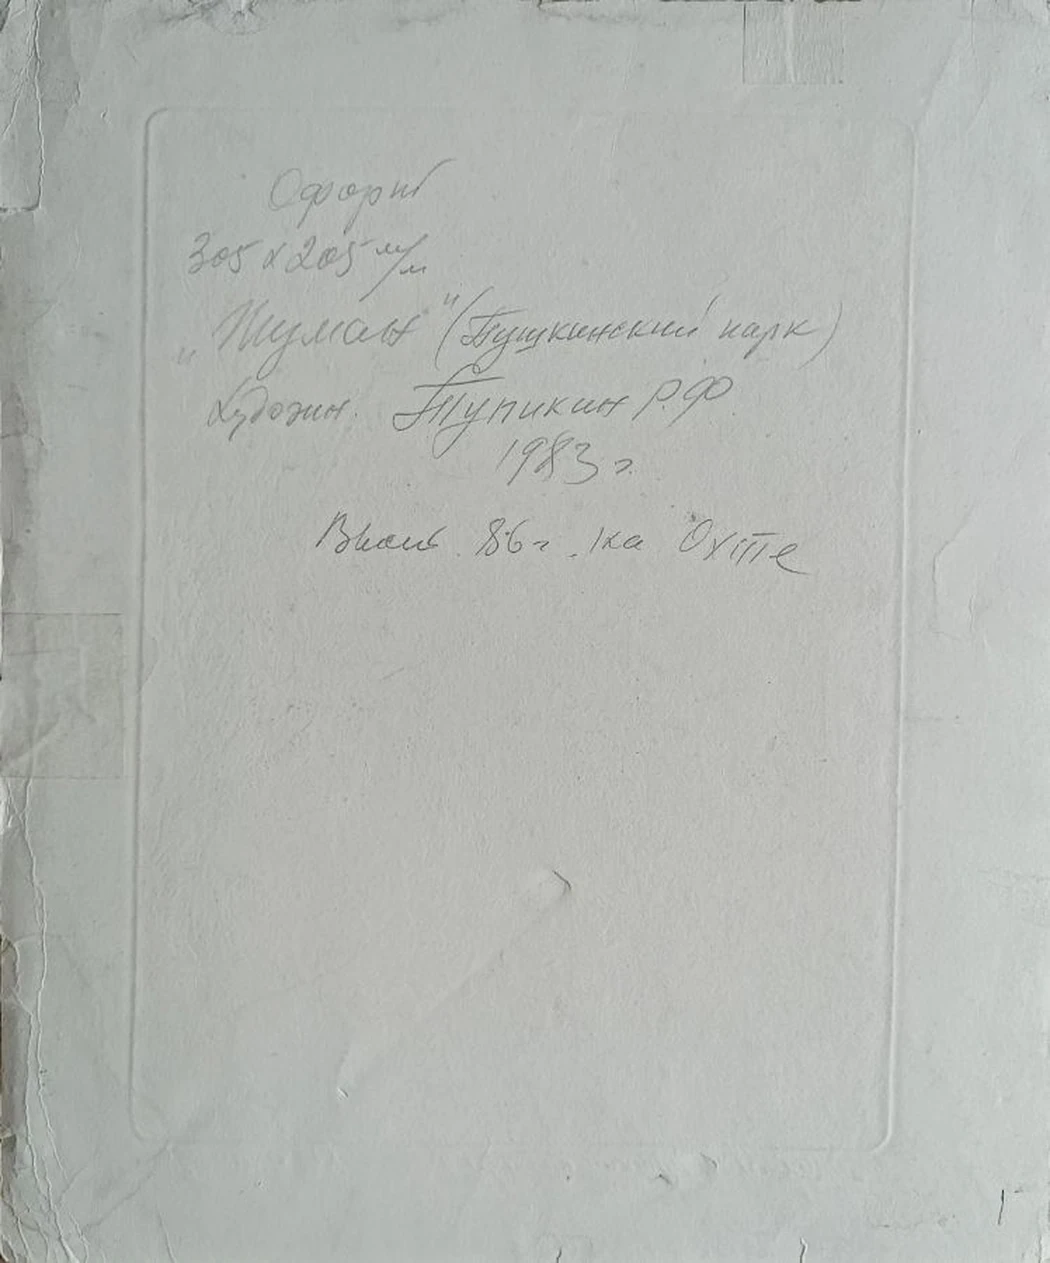 Офорт
305 х 205 м/м
„Туман" (Пушкинский парк)
Художн. Тупикин Р.Ф.
1983 г.
86 г. на Охте